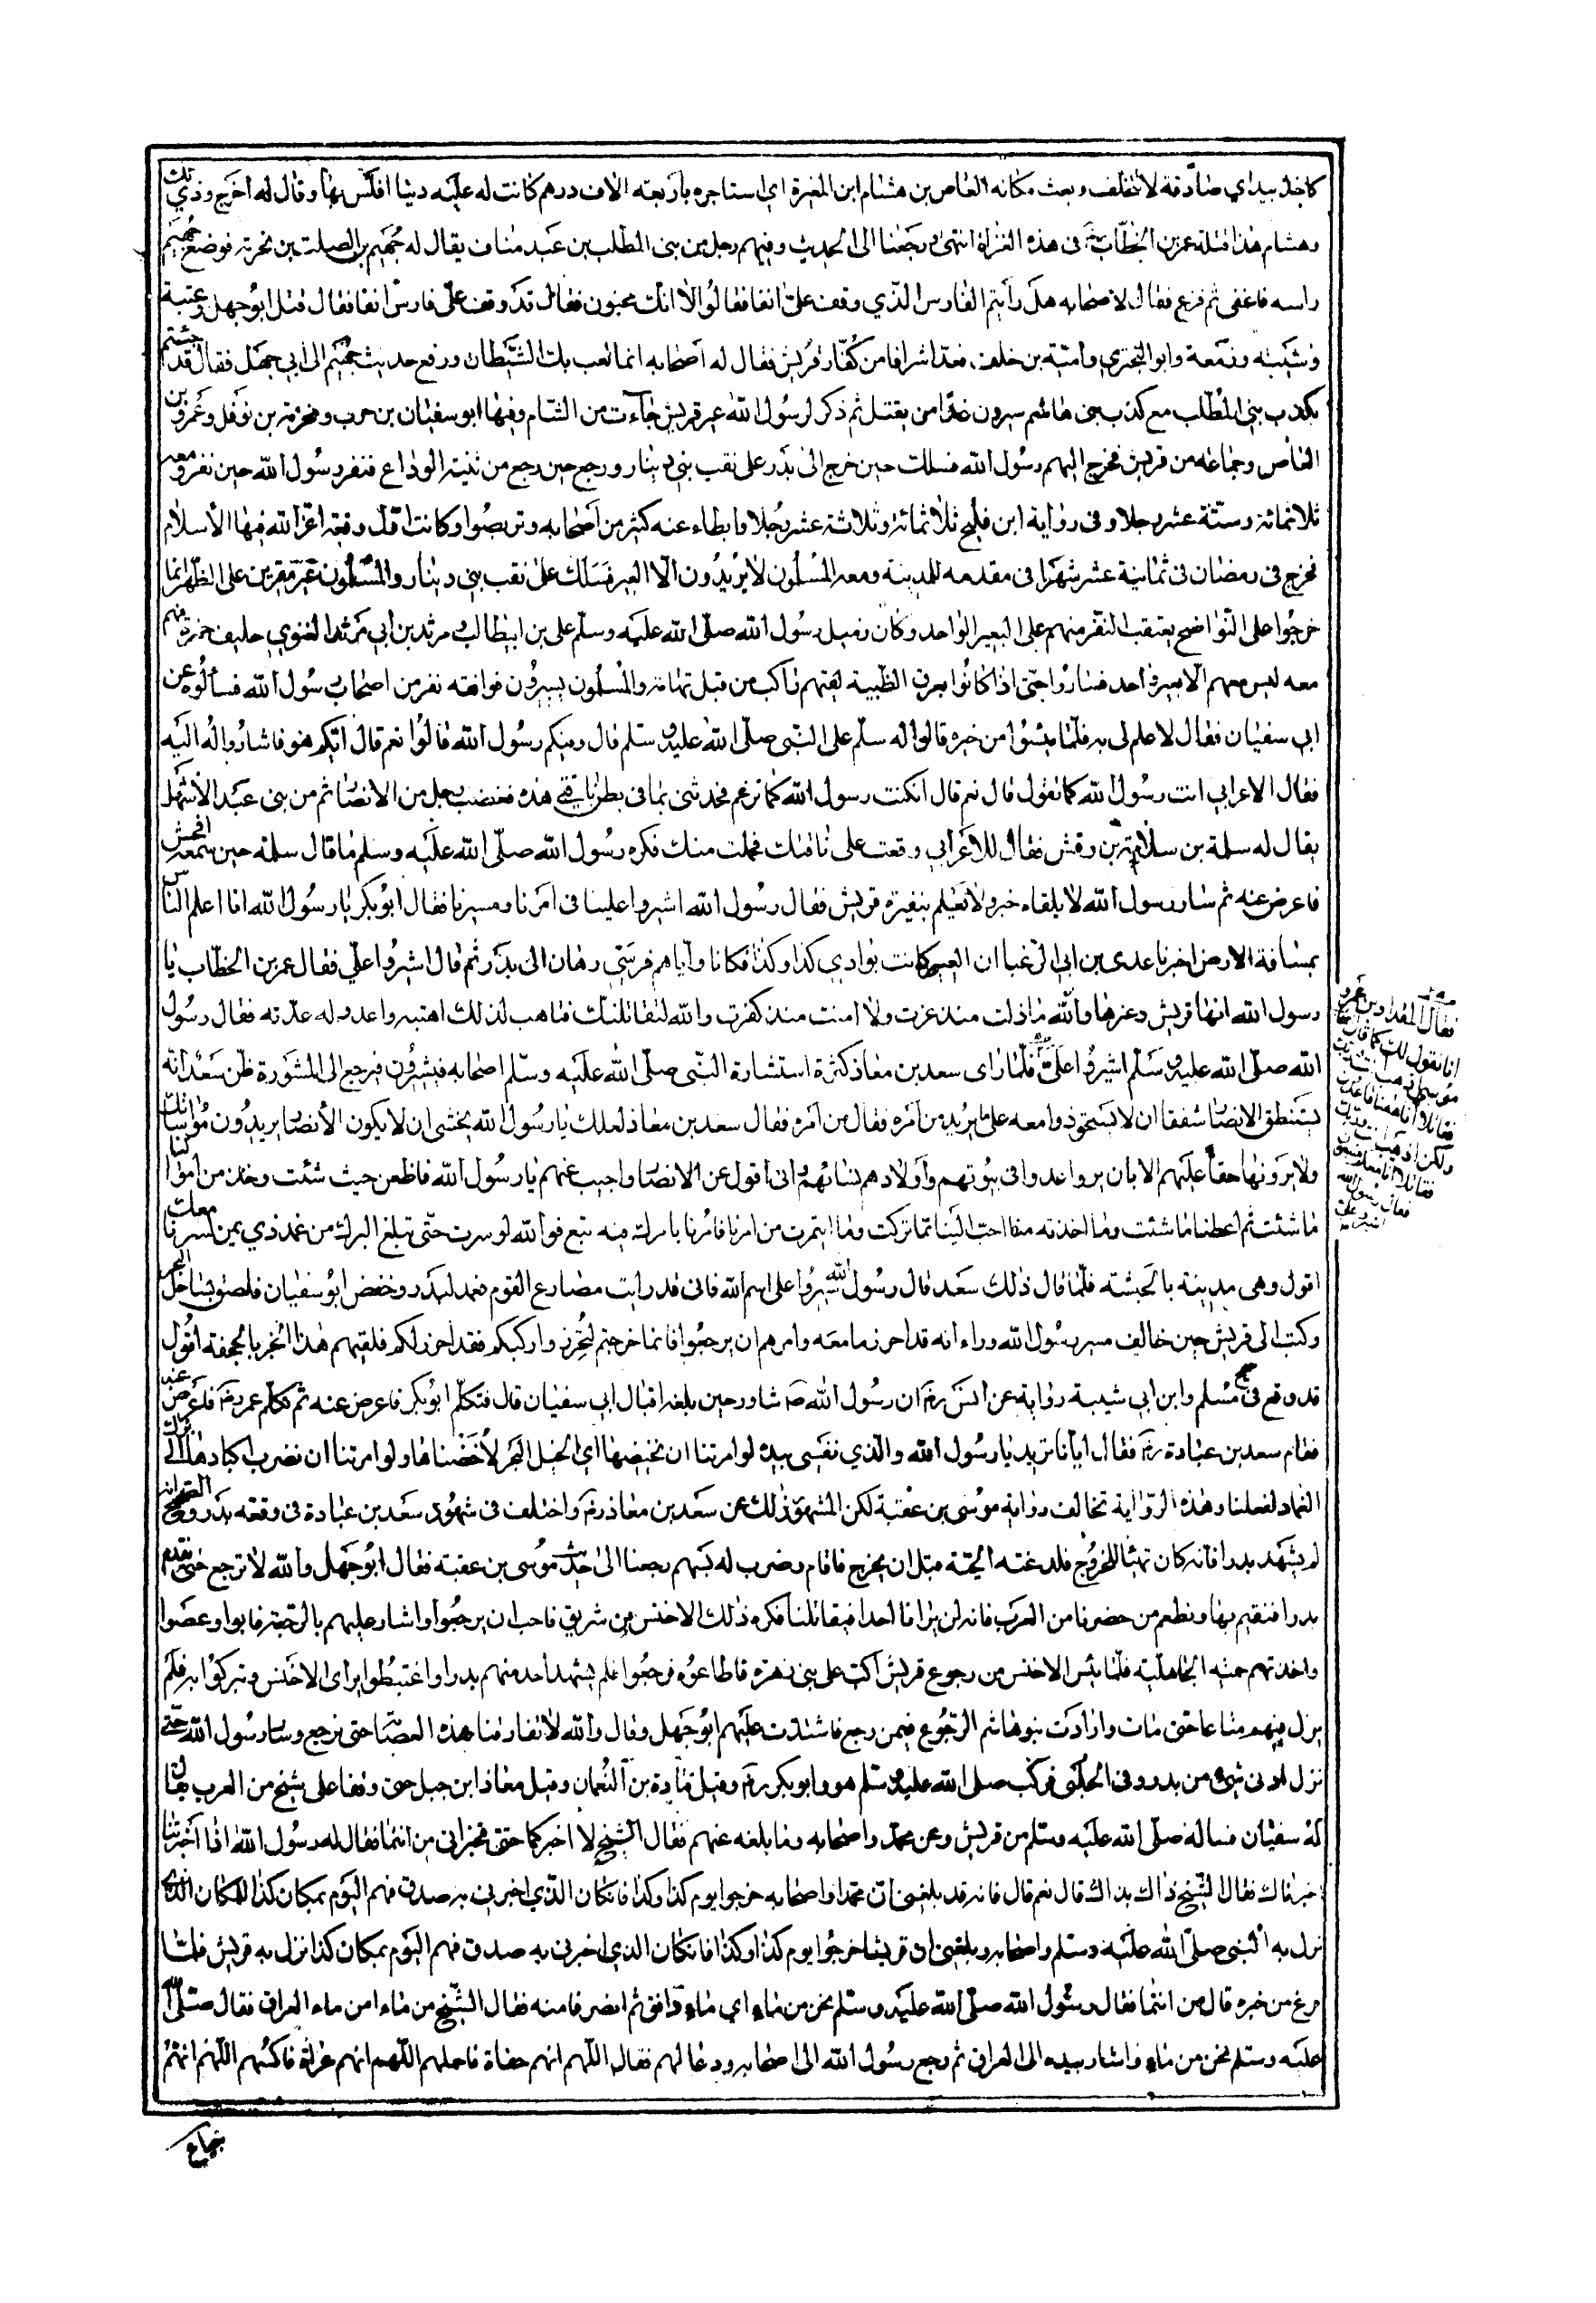 كاخذ بيد اي صادقة لا تتخلف وبعث مكانه العاص بن هشام ابن المغيرة اي استاجره باربعة الاف درهم كانت له عليه دينا افلس بها وقال له اخرج وديني لك
وهشام هذا قتله عمر بن الخطاب في هذه الغزاة انتهى رجعنا الى الحديث وفيهم رجل من بني المطلب بن عبد مناف يقال له جهيم بن الصلت بن مخرمة فوضع جهيم
راسه فاغفى ثم فزع فقال لاصحابه هل رأيتم الفارس الذي وقف علي انفا فقالوا لا انك مجنون فقال قد وقف علي فارس انفا فقال قتل ابو جهل وعتبة
وشيبة وزمعة وابو البختري وامية بن خلف فعد اشرافا من كفار قريش فقال له اصحابه انما لعب بك الشيطان ورفع حديث جهيم الى ابي جهل فقال قد جئتم
بكذب بني المطلب مع كذب بني هاشم سيرون غدا من يقتل ثم ذكر لرسول الله عير قريش جاءت من الشام وفيها ابو سفيان بن حرب ومخرمة بن نوفل وعمرو بن
العاص وجماعة من قريش فخرج اليهم رسول الله فسلك حين خرج الى بدر على نقب بني دينار ورجع حين رجع من ثنية الوداع فنفر رسول الله حين نفر ومعه
ثلاثمائة وستة عشر رجلا وفي رواية ابن فليح ثلاثمائة وثلاثة عشر رجلا وابطاء عنه كثير من اصحابه وتربصوا وكانت اول وقعة اعز الله فيها الاسلام
فخرج في رمضان في ثمانية عشر شهرا في مقدمه المدينة ومعه المسلمون لا يريدون الا العير فسلك على نقب بني دينار والمسلمون غير مقوين على الظهر انما
خرجوا على النواضح يعتقب النفر منهم على البعير الواحد وكان زميل رسول الله صلى الله عليه وسلم علي بن ابيطالب ومرثد بن أبي مرثد الغنوي حليف حمزة فهم
معه ليس معهم الا بعير واحد فساروا حتى اذا كانوا بعرق الظبية لقيهم راكب من قبل تهامة والمسلمون يسيرون فوافقه نفر من اصحاب رسول الله فسألوه عن
ابي سفيان فقال لا علم لي به فلما يئسوا من خبره قالوا له سلم على النبي صلى الله عليه وسلم قال وفيكم رسول الله قالوا نعم قال ايكم هو فاشاروا له اليه
فقال الاعرابي انت رسول الله كما تقول قال نعم قال ان كنت رسول الله كما تزعم فحدثني بما في بطن ناقتي هذه فغضب رجل من الانصار ثم من بني عبد الاشهل
يقال له سلمة بن سلامة بن وقش فقال للاعرابي وقعت على ناقتك فحملت منك فكره رسول الله صلى الله عليه وسلم ما قال سلمة حين سمعه افحش
فاعرض عنه ثم سار رسول الله لا يلقاه خبر ولا يعلم بنفيرة قريش فقال رسول الله اشيروا علينا في امرنا ومسيرنا فقال ابو بكر يا رسول الله انا اعلم الناس
بمسافة الارض اخبرنا عدي بن ابي الزغبا ان العير كانت بوادي كذا وكذا فكانا واياهم فرسي رهان الى بدر ثم قال اشيروا علي فقال عمر بن الخطاب يا
رسول الله انها قريش وعزها والله ما ذلت منذ عزت ولا امنت منذ كفرت والله لتقاتلنك فتاهب لذلك اهبته واعدد له عدته فقال رسول
الله صلى الله عليه وسلم اشيروا علي فلما راى سعد بن معاذ كثرة استشارة النبي صلى الله عليه وسلم اصحابه فيشيرون فيرجع الى المشورة ظن سعد انه
يستنطق الانصار شفقا ان لا يستحوذوا معه على ما يريد من امره فقال من امره فقال سعد بن معاذ لعلك يا رسول الله تخشى ان لا يكون الانصار يريدون مواساتك
ولا يرونها حقا عليهم الا بان يروا عدوا في بيوتهم واولادهم نسائهم واني اقول عن الانصار واجيب عنهم يا رسول الله فاظعن حيث شئت وخذ من اموالنا
ما شئت ثم اعطنا ما شئت وما اخذته منا احب الينا مما تركت وما ائتمرت من امر فامرنا بامرك فيه نتبع فوالله لو سرت حتى تبلغ البرك من غمد ذي يمن لسرنا معك
اقول وهي مدينة بالحبشة فلما قال ذلك سعد قال رسول الله سيروا على اسم الله فاني قد رايت مصارع القوم فعمد لبدر وخفض ابو سفيان فلصق بساحل البحر
وكتب الى قريش حين خالف مسير رسول الله وراء انه قد احرز ما معه وامرهم ان يرجعوا فانما خرجتم لتحرزوا ركبكم فقد احرز لكم فلقيهم هذا الخبر بالجحفة اقول
قد وقع في صحيح مسلم وابن ابي شيبة رواية عن انس رضي ان رسول الله ص شاور حين بلغه اقبال ابي سفيان قال فتكلم ابو بكر فاعرض عنه ثم تكلم عمر رضي فاعرض عنه
فقام سعد بن عبادة رضي فقال ايانا تريد يا رسول الله والذي نفسي بيده لو امرتنا ان نخيضها اي الخيل البحر لاخضناها ولو امرتنا ان نضرب اكبادها الى برك
الغماد لفعلنا وهذه الرواية تخالف رواية موسى بن عقبة لكن المشهور ذلك عن سعد بن معاذ رضي واختلف في شهود سعد بن عبادة في وقعة بدر والصحيح انه
لم يشهد بدرا فانه كان تهيئا للخروج فلدغته الحية قبل ان يخرج فاقام وضرب له بسهم رجعنا الى حديث موسى بن عقبة فقال ابو جهل والله لا نرجع حتى نقدم
بدرا فنقيم بها ونطعم من حضرنا من العرب فانه لن يرانا احد فيقاتلنا فكره ذلك الاخنس بن شريق فاحب ان يرجعوا واشار عليهم بالرجعة فابوا وعصوا
واخذتهم حمية الجاهلية فلما يئس الاخنس من رجوع قريش اكب على بني زهرة فاطاعوه فرجعوا فلم يشهد احد منهم بدرا واغتبطوا براى الاخنس وتبركوا به فلم
يزل فيهم مطاعا حتى مات وارادت بنو هاشم الرجوع فيمن رجع فاشتدت عليهم ابو جهل وقال والله لا تفارقنا هذه العصبة حتى نرجع وسار رسول الله حتى
نزل ادنى شيء من بدر وفي الحلبي فركب صلى الله عليه وسلم هو وابو بكر رضي وقيل قتادة بن النعمان وقيل معاذ ابن جبل حتى وقفا على شيخ من العرب يقال
له سفيان فساله صلى الله عليه وسلم من قريش وعن محمد واصحابه وما بلغه عنهم فقال الشيخ لا اخبركما حتى تخبراني من انتما فقال له رسول الله اذا اخبرتنا
اخبرناك فقال الشيخ ذاك بذاك قال نعم قال فانه قد بلغني ان محمدا واصحابه خرجوا يوم كذا وكذا فان كان الذي اخبرني به صدق فهم اليوم بمكان كذا للمكان الذي
نزل به النبي صلى الله عليه وسلم واصحابه وبلغني ان قريشا خرجوا يوم كذا وكذا فان كان الذي اخبرني به صدق فهم اليوم بمكان كذا نزل به قريش فلما
فرغ من خبره قال من انتما فقال رسول الله صلى الله عليه وسلم نحن من ماء اي ماء دافق ثم انصرفا منه فقال الشيخ من ماء امن ماء العراق فقال صلى الله
عليه وسلم نحن من ماء واشار بيده الى العراق ثم رجع رسول الله الى اصحابه ودعا لهم فقال اللهم انهم حفاة فاحملهم اللهم انهم عراة فاكسهم اللهم انهم
جياع
فقال المقداد بن عمرو
انا نقول لك كما قال
موسى اذهب انت وربك
فقاتلا انا ههنا قاعدون
ولكن اذهب انت وربك
فقاتلا انا معكم متبعون
فقال رسول الله
اشيروا علي